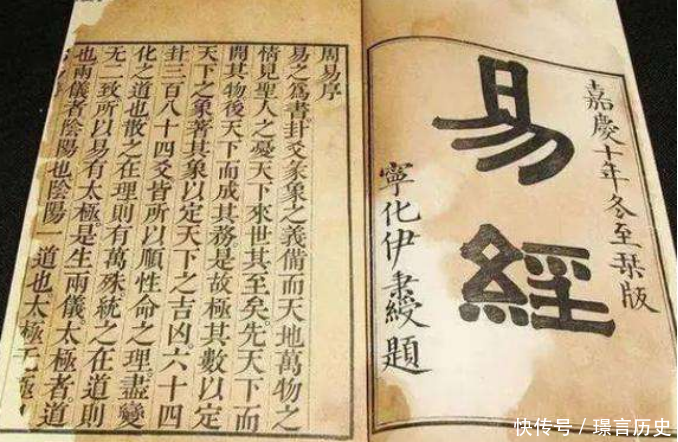 嘉慶十年冬至栞版
易經
寧化伊秉綬題
周易序
易之爲書卦爻彖象之義備而天地萬物之
情見聖人之憂天下來世其至矣先天下而
開其物後天下而成其務是故極其數以定
天下之象著其象以定天下之吉凶六十四
卦三百八十四爻皆所以順性命之理盡變
化之道也散之在理則有萬殊統之在道則
无二致所以易有太極是生兩儀太極者道
也兩儀者陰陽也陰陽一道也太極无極
快传号／璟言历史